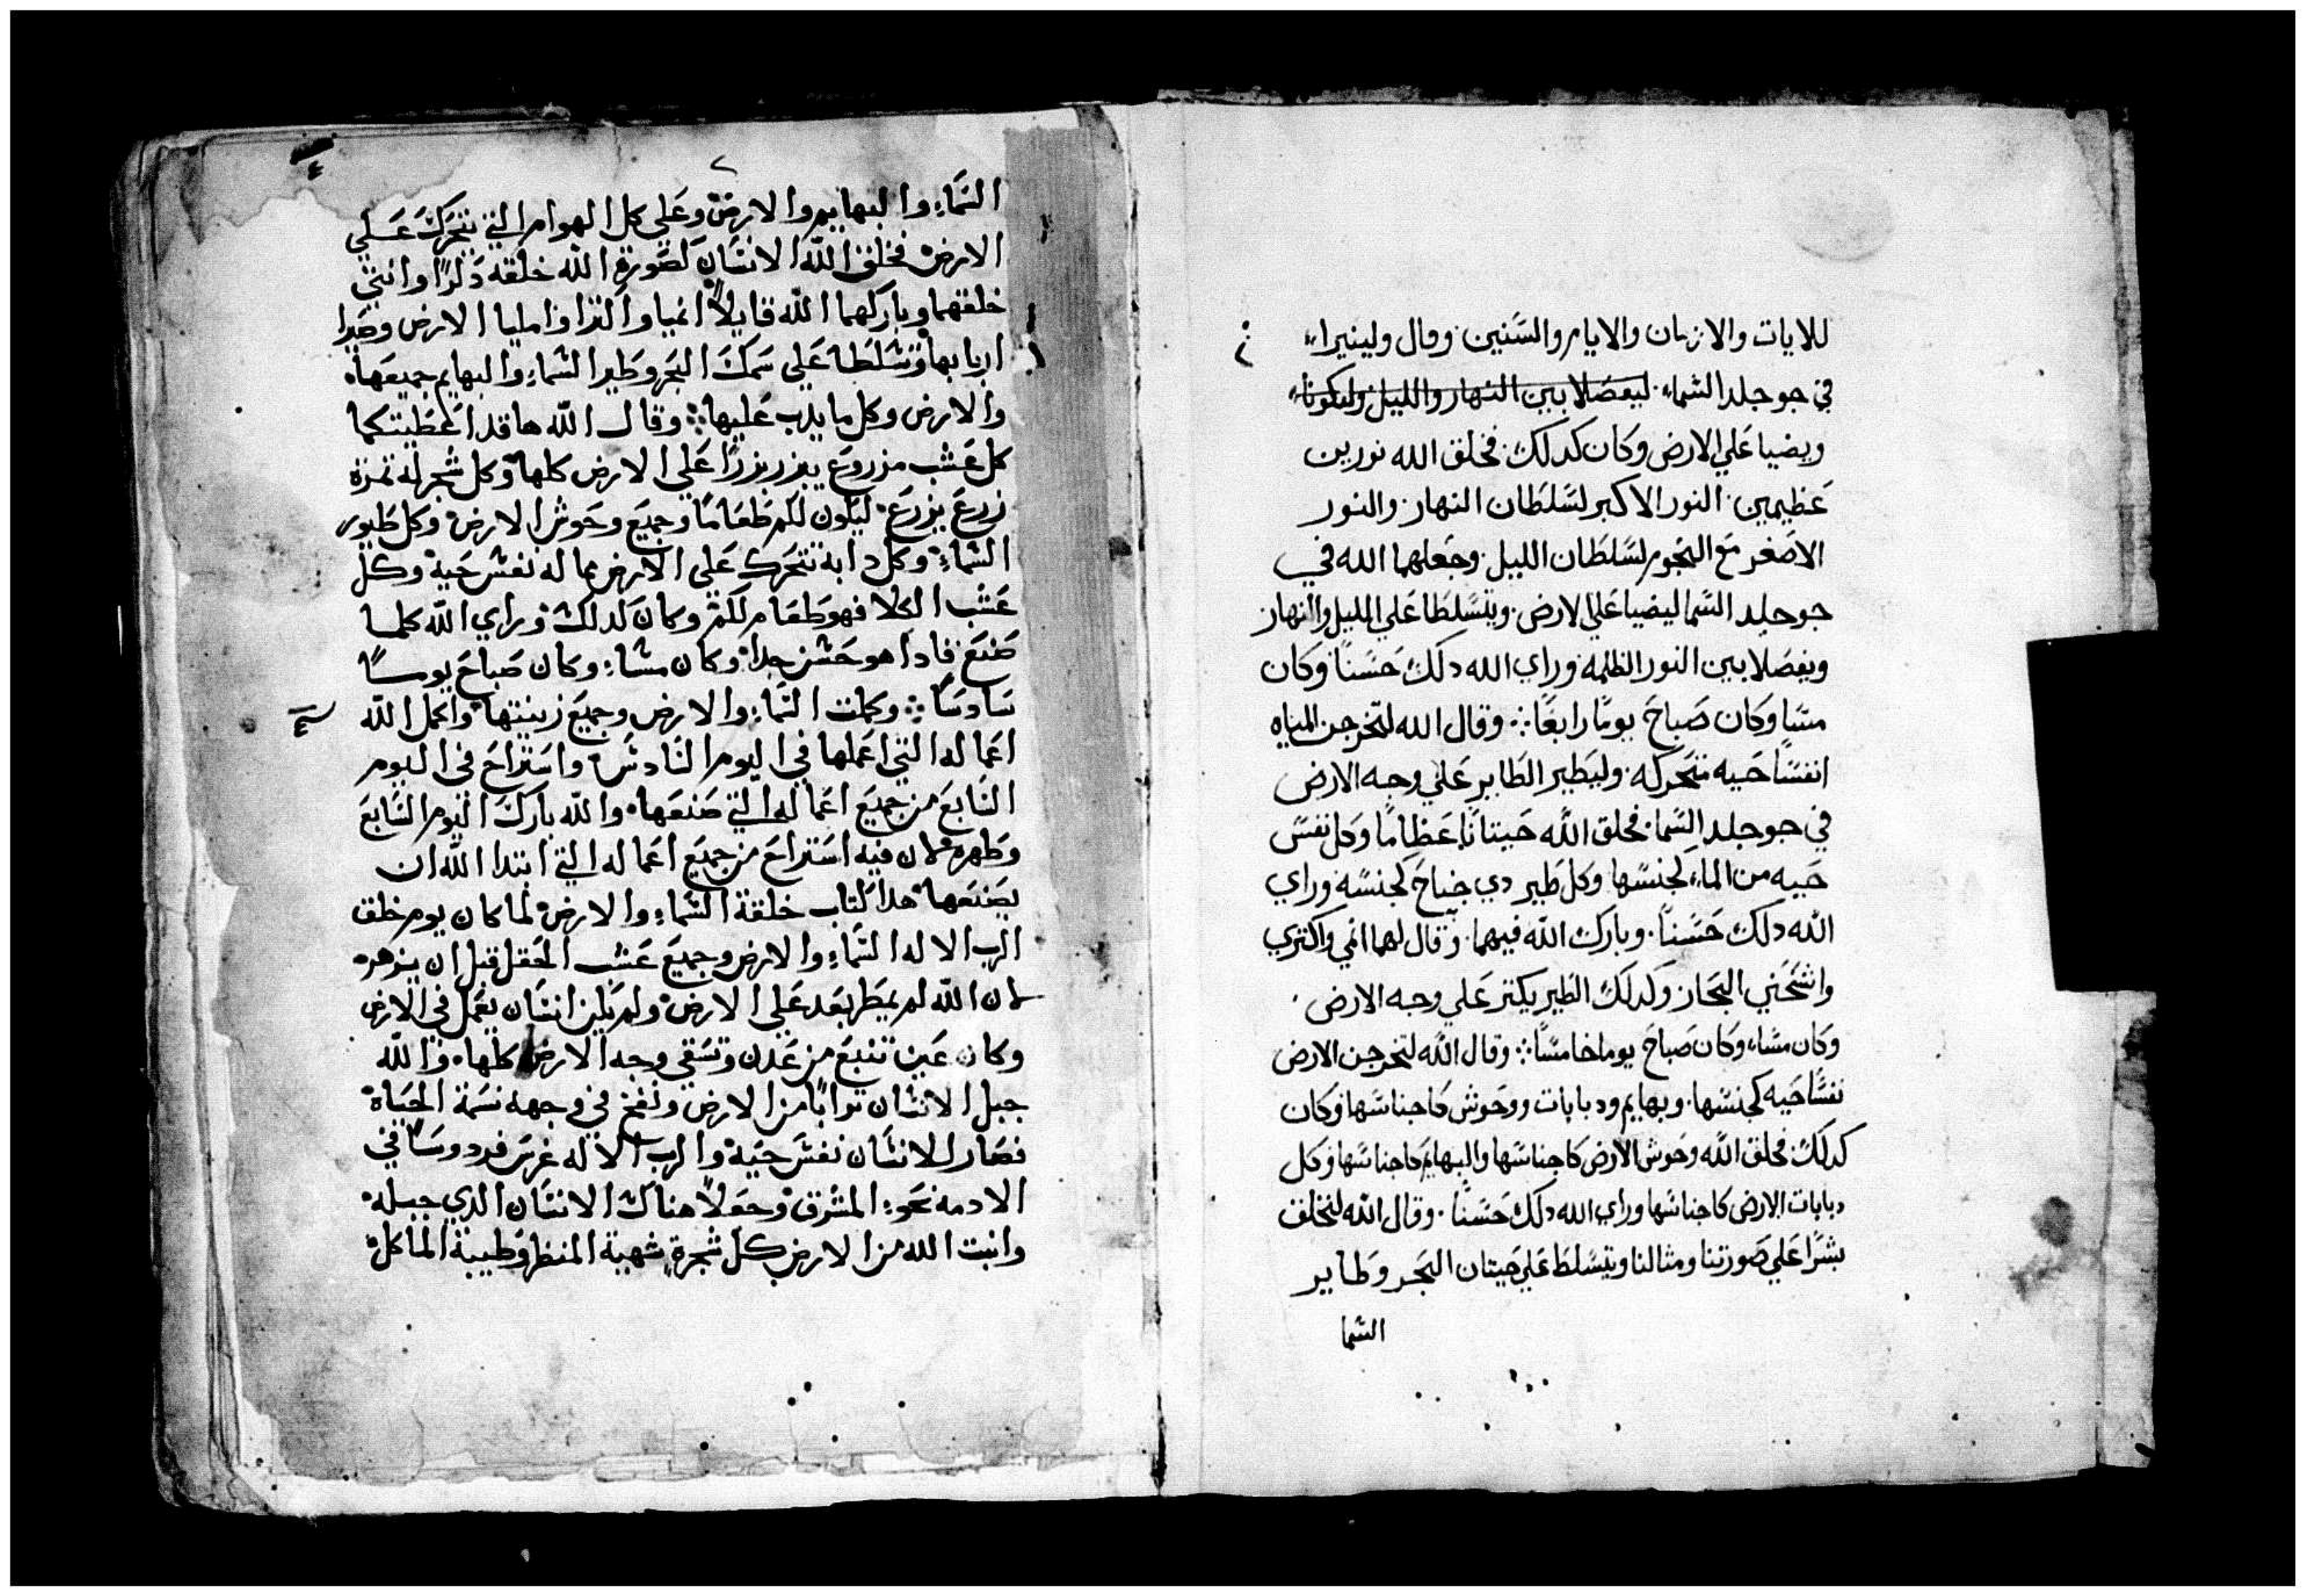 للايات والازمان والايام والسَنين. وقال ولينيرا،
في جو جلد الشماء ليفصَلا بين النهار والليل وليكونا،
ويضيا عَلي الارض وكان كدلك. فخلق الله نورين
عَظيمين. النور الاكبر لسَلطان النهار. والنور
الاصَغر مَع النجوم لسَلطَان الليل. وجَعلهما الله في
جو جلد السَما ليضيا عَلي الارض. ويتسَلطَا عَلي الليل والنهار
ويفصَلا بين النور الظلمه وراي الله دلك حَسَناً وكان
مسَا وكان صَباحَ يومًا رابعًا ܀ وقال الله لتخرجن المياه
انفسَاً حَيه متحَركه. وليَطير الطَاير عَلي وجه الارض
في جو جلد السَما. فخلق الله حَيتانًا عَظامًا وكل نفسَ
حَيه من الماء لجنسَها وكل طَير دي جناحَ لجنسَه وراي
الله دلك حَسَناً. وبارك الله فيهما. وقال لهما انمي واكتري
واشَحَني البحَار ولدلك الطَير يكتر عَلي وجه الارض
وكان مسَاء وكان صَباحَ يوما خامسَاً ܀ وقال الله لتخرجن الارض
نفسَاً حَيه كجنسَها. وبهايم ودبابات ووحَوش كاجناسَها وكان
كدلك. فخلق الله وحَوش الارض كاجناسَها والبهايم كاجناسَها وكل
دبابات الارض كاجناسَها وراي الله دلك حَسَناً. وقال الله لنخلق
بشَرًا عَلي صَورتنا ومثالنا ويتسَلطَ عَلي حَيتان البحَر وطَاير
الشما
٤
السَمَاء والبهايم والارض وعَلي كل الهوام التي تتحَرك عَلي
الارض فخلق الله الانسَان لصَورة الله خلقه دكرًا وانتي
خلقهما وباركهما الله قايلاً انميا واكترا واملياا الارض وصَيرا
اربابها وتسَلطَا عَلي سَمك البحَر وطَير السَماء والبهايم جميعَها
والارض وكل ما يدب عَليها ܀ وقال الله ها قد اعَطَيتكما
كل عَشب مزروعَ يبزر بزرًا عَلي الارض كلها وكل شجر له تمرة
زرعَ يزرعَ ليكون لكم طَعَامًا وجميعَ وحَوش الارض وكل طَيور
السَماء وكل دابة تتحَرك عَلي الارض مما له نفسَ حَية وكل
عَشب الكلا فهو طَعَام لكم وكان كدلك وراي الله كلما
صَنعَ فادا هو حَسَن جدا وكان مسَاء وكان صَباحَ يوما
سَادسَاً ܀ وكملت السَماء والارض وجميعَ زينتها واكمل الله
اعَماله التي اعَملها في اليوم السَادسَ واسَتراحَ في اليوم
السَابعَ من جميعَ اعَماله التي صَنعَها. والله بارك اليوم السَابعَ
وطَهره لان فيه اسَتراحَ من جميعَ اعَماله التي ابتدا الله ان
يصَنعَها هدا كتاب خلقة السَماء والارض لما كان يوم خلق
الرب الاله السَماء والارض وجميعَ عَشب الحَقل قبل ان يزهر
لان الله لم يمطَر بعَد عَلي الارض ولم يكن انسَان يعَمل في الارض
وكان عَين تنبعَ من عَدن وتسَقي وجه الارض كلها. والله
جبل الانسَان ترابًا من الارض ونفخ في وجهه نسَمة الحَياة
فصَار الانسَان نفسَ حَية والرب الاله غرسَ فردوسًا في
الادمه نحَو المشرق وجعَل هناك الانسَان الدي جبله
وانبت الله من الارض كل شجرة شهية المنظر وطَيبة الماكل